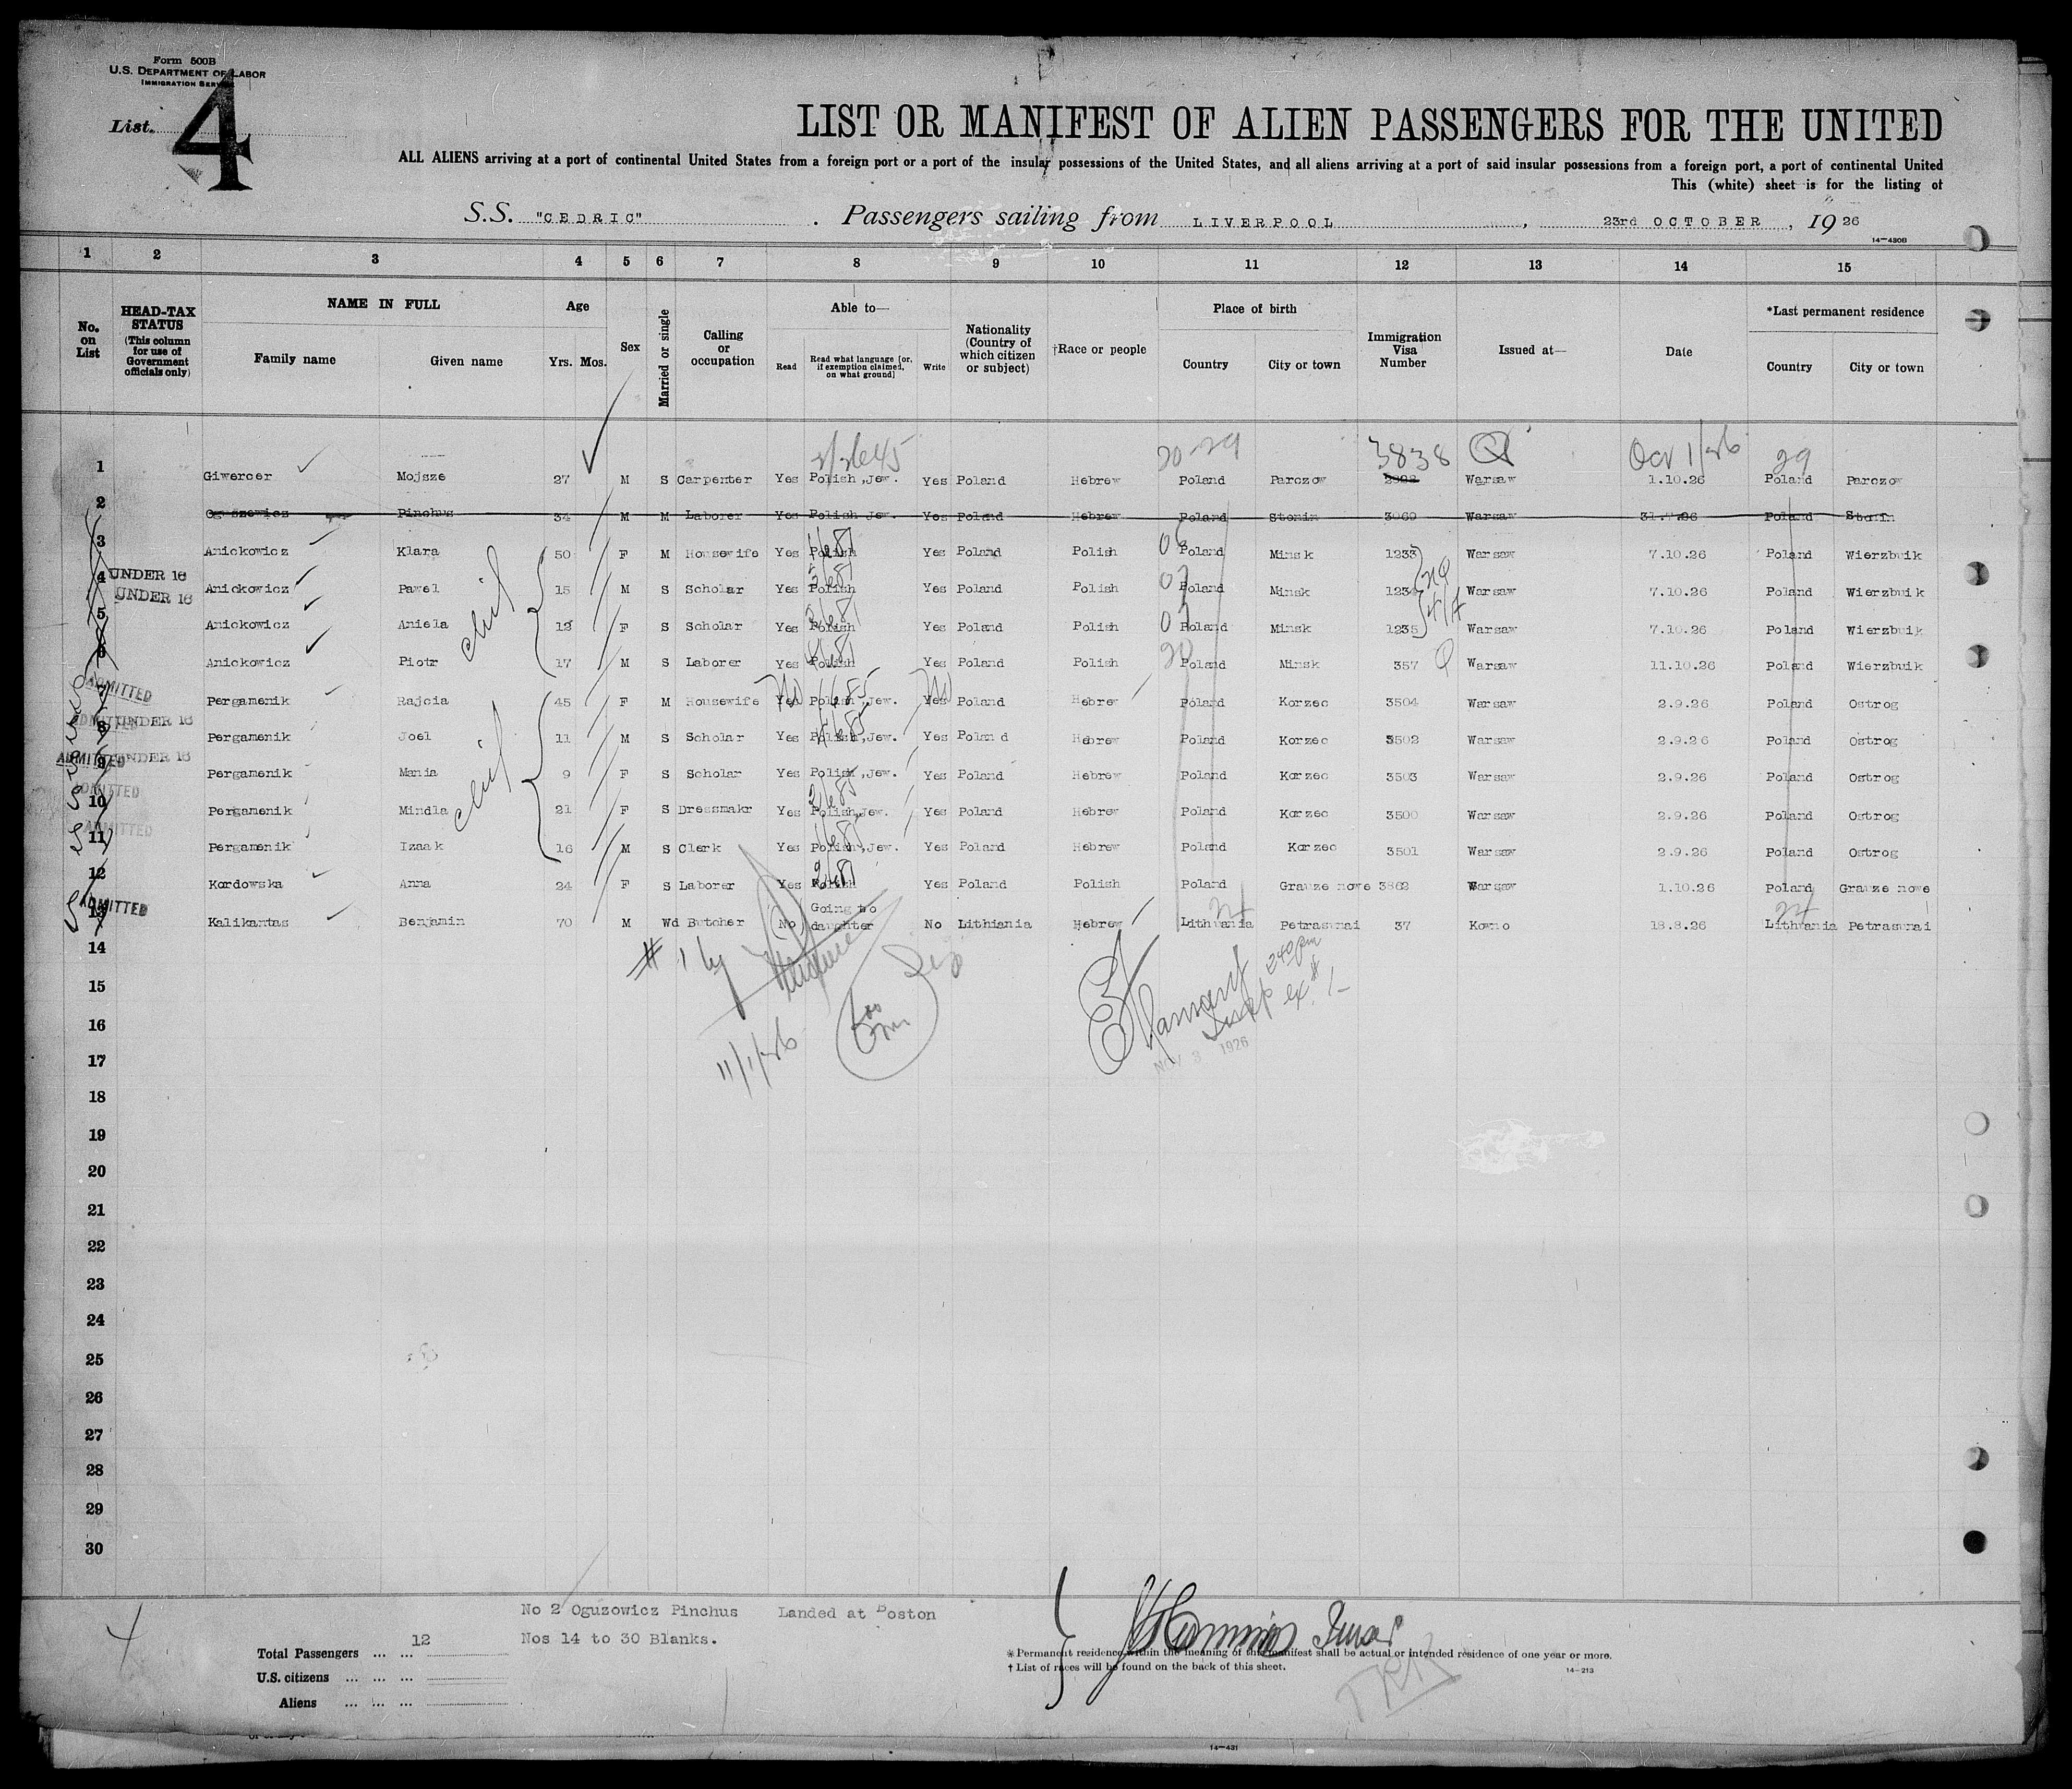 Form 500B
U.S. DEPARTMENT OF LABOR
IMMIGRATION
List 4
LIST OR MANIFEST OF ALIEN PASSENGERS FOR THE UNITED
ALL ALIENS arriving at a port of continental United States from a foreign port or a port of the insular possessions of the United States, and all aliens arriving at a port of said insular possessions from a foreign port, a port of continental United
This (white) sheet is for the listing of
S.S. "CEDRIC" . Passengers sailing from LIVERPOOL , 23rd OCTOBER , 19 26
14-430B
1 2 3 4 5 6 7 8 9 10 11 12 13 14 15
No. on List
HEAD-TAX STATUS (This column for use of Government officials only)
NAME IN FULL
Family name Given name
Age
Yrs. Mos.
Sex
Married or single
Calling or occupation
Able to—
Read Read what language [or, if exemption claimed, on what ground] Write
Nationality (Country of which citizen or subject)
†Race or people
Place of birth
Country City or town
Immigration Visa Number
Issued at—
Date
*Last permanent residence
Country City or town
20-29 3838 Oct 1/26 29
1 Giwercer Mojsze 27 M S Carpenter Yes Polish,Jew. Yes Poland Hebrew Poland Parczow Warsaw 1.10.26 Poland Parczow
2 Pinchus 34 M M Laborer Yes Polish Jew. Yes Poland Hebrew Poland Stonin 3069 Warsaw Poland Stonin
3 Anickowicz Klara 50 F M Housewife Yes Polish Yes Poland Polish Poland Minsk 1233 Warsaw 7.10.26 Poland Wierzbnik
4 UNDER 16 Anickowicz Pawel 15 M S Scholar Yes Polish Yes Poland Polish Poland Minsk 1234 Warsaw 7.10.26 Poland Wierzbnik
5 UNDER 16 Anickowicz Aniela 12 F S Scholar Yes Polish Yes Poland Polish Poland Minsk 1235 Warsaw 7.10.26 Poland Wierzbuik
6 Anickowicz Piotr 17 M S Laborer Yes Polish Yes Poland Polish Poland Minsk 357 Warsaw 11.10.26 Poland Wierzbuik
7 ADMITTED Pergamenik Rajcia 45 F M Housewife Yes No Polish,Jew. Yes No Poland Hebrew Poland Korzec 3504 Warsaw 2.9.26 Poland Ostrog
8 ADMITTED UNDER 16 Pergamenik Joel 11 M S Scholar Yes Polish,Jew. Yes Poland Hebrew Poland Korzec 3502 Warsaw 2.9.26 Poland Ostrog
9 ADMITTED UNDER 16 Pergamenik Mania 9 F S Scholar Yes Polish,Jew. Yes Poland Hebrew Poland Korzec 3503 Warsaw 2.9.26 Poland Ostrog
10 ADMITTED Pergamenik Mindla 21 F S Dressmakr Yes Polish,Jew. Yes Poland Hebrew Poland Korzec 3500 Warsaw 2.9.26 Poland Ostrog
11 ADMITTED Pergamenik Izaak 16 M S Clerk Yes Polish,Jew. Yes Poland Hebrew Poland Korzec 3501 Warsaw 2.9.26 Poland Ostrog
12 Kordowska Anna 24 F S Laborer Yes Polish Yes Poland Polish Poland Grauze nowe 3862 Warsaw 1.10.26 Poland Grauze nowe
13 ADMITTED Kalikantas Benjamin 70 M Wd Butcher No Going to daughter No Lithiania Hebrew Lithuania Petrasunai 37 Kowno 18.8.26 Lithuania Petrasunai
14
# 1 by
240 pm
15
16
11/1/26
NOV 3 1926
17
18
19
20
21
22
23
24
25
26
27
28
29
30
No 2 Oguzowicz Pinchus Landed at Boston
Nos 14 to 30 Blanks.
Total Passengers ... ... 12
U.S. citizens ... ... ...
Aliens ... ... ...
* Permanent residence within the meaning of this manifest shall be actual or intended residence of one year or more.
† List of races will be found on the back of this sheet.
14-213
14-431